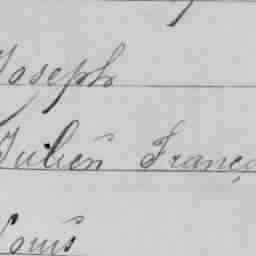 Joseph
Julien Franç
Louis